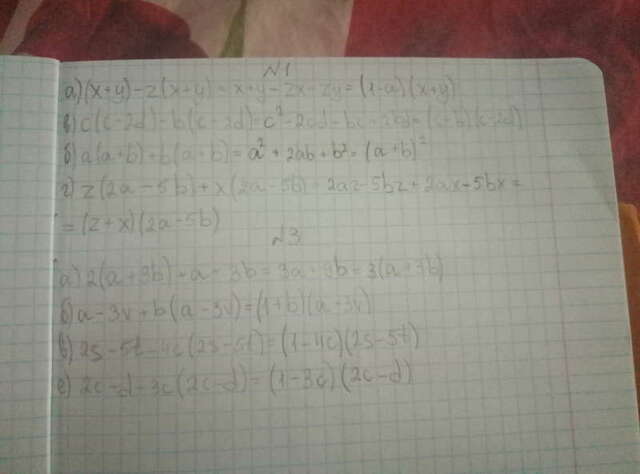 N1
а) (x+y)-z(x+y) = x+y-zx-zy = (1-a)(x+y)
в) c(c-2d)-b(c-2d)=c²-2cd-bc+2bd=(c-b)(c-2d)
б) a(a+b)+b(a+b)= a²+2ab+b²= (a+b)²
г) z(2a-5b)+x(2a-5b)=2az-5bz+2ax-5bx=
=(z+x)(2a-5b)
N3
а) 2(a+3b)+a+3b=3a+9b=3(a+3b)
б) a-3v+b(a-3v)=(1+b)(a-3v)
в) 2s-5t-4c(2s-5t)=(1-4c)(2s-5t)
е) 2c-d-3c(2c-d)=(1-3c)(2c-d)